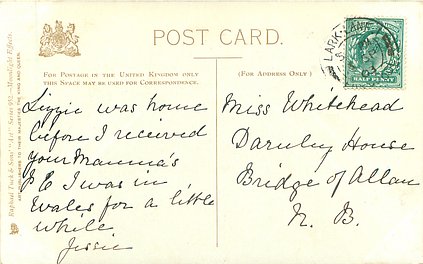 POST CARD.
FOR POSTAGE IN THE UNITED KINGDOM ONLY
THIS SPACE MAY BE USED FOR CORRESPONDENCE.
(FOR ADDRESS ONLY)
Lizzie was home
before I received
your Mamma's
P C I was in
Wales for a little
while.
Jessie
Miss Whitehead
Darnley House
Bridge of Allan
N. B.
LARK LANE
HALF PENNY
Raphael Tuck & Sons' "Art" Series "Moonlight Effects.
ART PUBLISHERS TO THEIR MAJESTIES THE KING AND QUEEN.